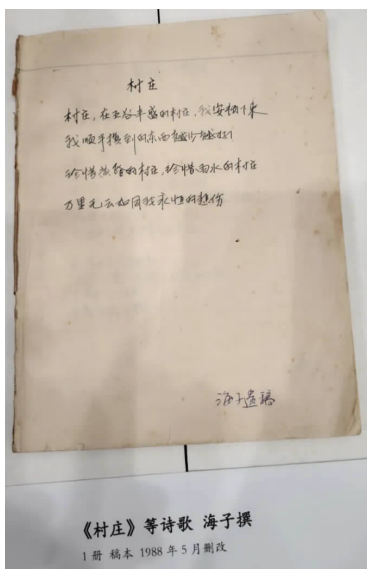 村庄
村庄，在五谷丰盛的村庄，我安顿下来
我顺手摸到的东西越少越好！
珍惜黄昏的村庄，珍惜雨水的村庄
万里无云如同我永恒的悲伤
海子遗稿
《村庄》等诗歌 海子撰
1 册 稿本 1988 年 5 月删改